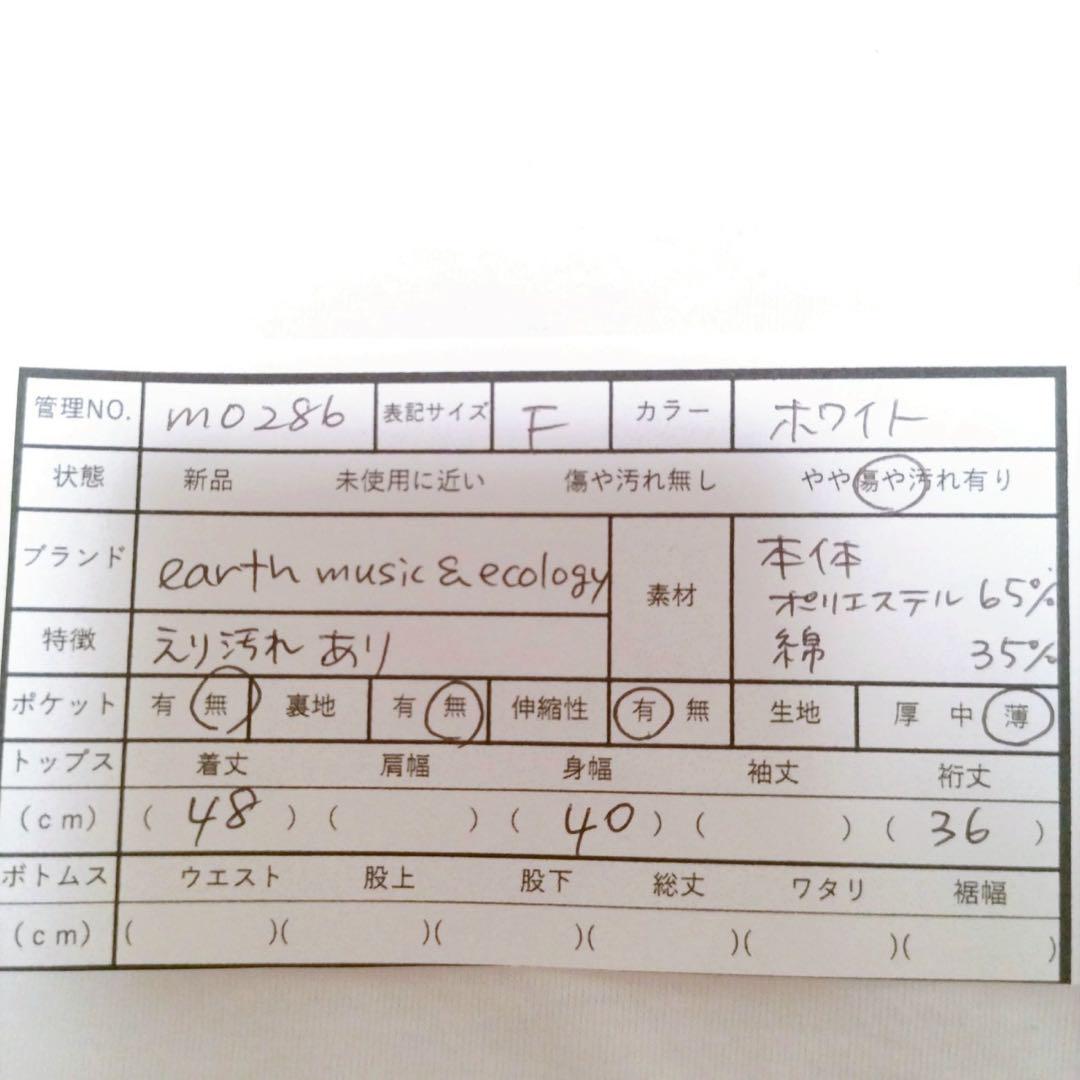 管理NO. m0286 表記サイズ F カラー ホワイト
状態 新品 未使用に近い 傷や汚れ無し やや傷や汚れ有り
ブランド earth music & ecology 素材 本体
ポリエステル 65%
綿 35%
特徴 えり汚れ あり
ポケット 有 無 裏地 有 無 伸縮性 有 無 生地 厚 中 薄
トップス 着丈 肩幅 身幅 袖丈 裄丈
(cm) ( 48 ) ( ) ( 40 ) ( ) ( 36 )
ボトムス ウエスト 股上 股下 総丈 ワタリ 裾幅
(cm) ( )( )( )( )( )( )